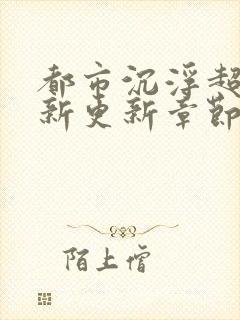 都市沉浮超
新更新章節
陌上僧